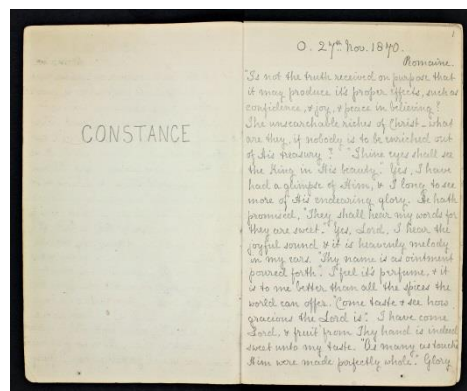 CONSTANCE
1
O. 27th Nov. 1870.
Romaine.
"Is not the truth received on purpose that
it may produce it's proper effects, such as
confidence, & joy, & peace in believing?
The unsearchable riches of Christ – what
are they, if nobody is to be enriched out
of His treasury?" "Thine eyes shall see
the King in His beauty." Yes, I have
had a glimpse of Him, & I long to see
more of His endearing glory. He hath
promised, "They shall hear my words for
they are sweet." Yes, Lord, I hear the
joyful sound & it is heavenly melody
in my ears. "Thy name is as ointment
poured forth". I feel it's perfume, & it
is to me better than all the spices the
world can offer. "Come taste & see how
gracious the Lord is". I have come
Lord, & fruit from Thy hand is indeed
sweet unto my taste. "As many as touch'd
Him were made perfectly whole". Glory